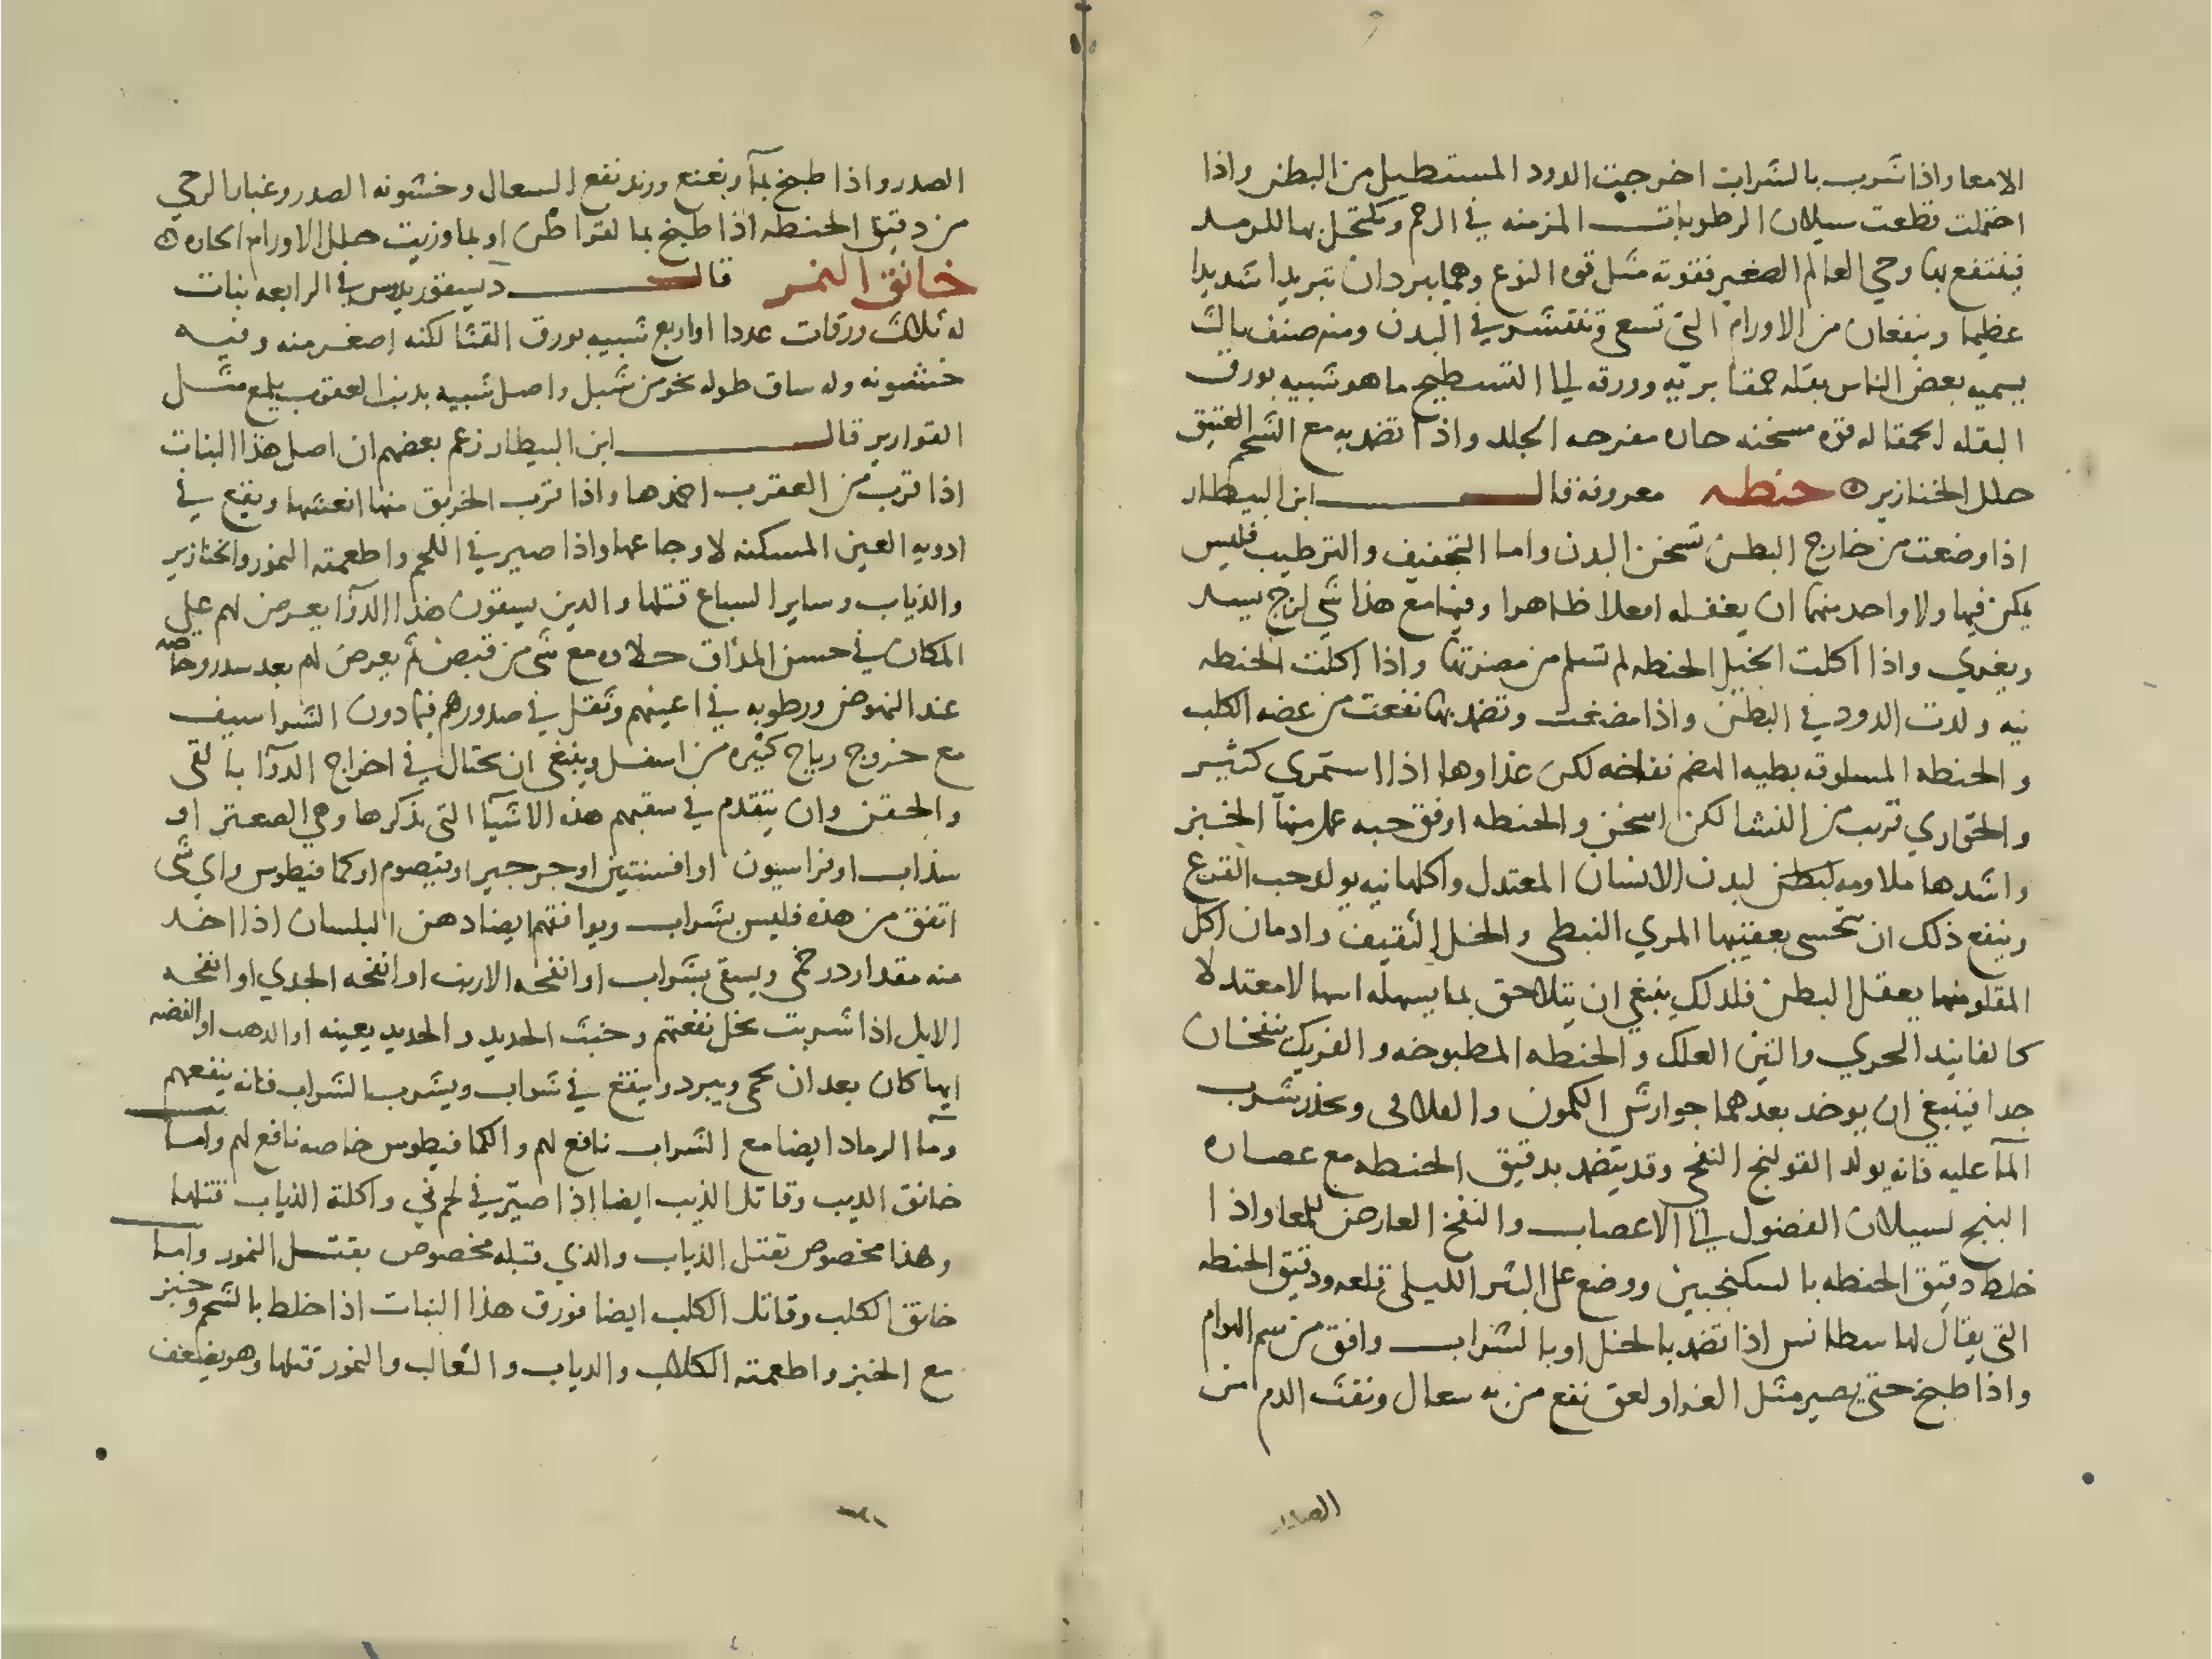 الامعا واذا شرب بالشراب اخرجت الدود المستطيل من البطن واذا
احتملت قطعت سيلان الرطوبات المزمنه في الرحم ويكتحل بها للرمد
فينتفع بها وحي العالم الصغير فقوته مثل قوه النوع وهما يبردان تبريدا شديدا
عظيما وينفعان من الاورام التي تسعى وتنتشر في البدن ومنه صنف ثالث
يسميه بعض الناس بقله حمقا بريه وورقه الى التسطيح ما هو شبيه بورق
البقله الحمقا له قوه مسخنه حاده مقرحه الجلد واذا تضمد به مع الشحم العتيق
حلل الخنازير حنطه معروفة قال ابن البيطار
اذا وضعت من خارج البطن تسخن البدن واما التجفيف والترطيب فليس
يمكن فيها ولا واحد منهما ان يفعله فعلا ظاهرا وفيها مع هذا شي لزج يسد
ويغري واذا اكلت الخيل الحنطه لم تسلم من مضرتها واذا اكلت الحنطه
نيه ولدت الدود في البطن واذا مضغت وتضمد بها نفعت من عضه الكلب
والحنطه المسلوقه بطيه الهضم نفاخه لكن غذاوها اذا استمري كثير
والحواري قريب من النشا لكن اسخن والحنطه اوفق حبه عمل منها الخبز
واشدها ملاومه لبطن لبدن الانسان المعتدل واكلها نيه يولد حب القرع
وينفع ذلك ان تحسى بعقبها المري النبطي والخل الثقيف وادمان اكل
المقلو منها يعقل البطن فلذلك ينبغي ان يتلاحق بما يسهله اسهالا معتدلا
كالفانيد السجري والتين العلك والحنطه المطبوخه والفريك ينفخان
جدا فينبغي ان يوخذ بعدهما جوارش الكمون والفلافلى ويحذر شرب
المآ عليه فانه يولد القولنج النفخي وقد يتضمد بدقيق الحنطه مع عصاره
البنج لسيلان الفضول الى الاعصاب والنفخ العارض للمعا واذا
خلط دقيق الحنطه بالسكنجبين ووضع على البثر الليلي قلعه ودقيق الحنطه
التي يقال لها سطانس اذا تضمد بالخل او بالشراب وافق من سم الهوام
واذا طبخ حتى يصير مثل الغرا ولعق نفع من به سعال ونفث الدم من
الصدر
الصدر واذا طبخ بمآ ونعنع وزبد نفع السعال وخشونه الصدر وغبار الرحي
من دقيق الحنطه اذا طبخ بما لقراطن او بما وزيت حلل الاورام الحاره
خانق النمر قال ديسقوريدوس في الرابعه نبات
له ثلاث ورقات عددا او اربع شبيه بورق القثا لكنه اصغر منه وفيه
خشونه وله ساق طوله نحو من شبر واصل شبيه بذنب العقرب يلمع مثل
القوارير قال ابن البيطار زعم بعضهم ان اصل هذا النبات
اذا قرب من العقرب اخمدها واذا قرب الخربق منها انعشها ويقع في
ادويه العين المسكنه لاوجاعها واذا صير في اللحم واطعمته النمور والخنازير
والذياب وساير السباع قتلها والذين يسقون هذا الدوآ يعرض لهم على
المكان في حسن المذاق حلاوه مع شي من قبض ثم يعرض لهم بعد سدر وخاصه
عند النهوض ورطوبه في اعينهم وثقل في صدورهم فيما دون الشراسيف
مع خروج رياح كثيره من اسفل وينبغي ان يحتال في اخراج الدوآ بالقى
والحقن وان يتقدم في سقيهم هذه الاشيآ التي نذكرها وهي الصعتر او
سذاب او فراسيون او افسنتين او جرجير او قيصوم او كما فيطوس واي شي
اتفق من هذه فليس بشراب ويوافقهم ايضا دهن البلسان اذا اخذ
منه مقدار درخمي ويسقى بشراب او انفحه الارنب او انفحه الجدي او انفحه
الايل اذا شربت بخل نفعتهم وخبث الحديد والحديد بعينه او الذهب او الفضه
ايها كان بعد ان يحمى ويبرد وينقع في شراب ويشرب الشراب فانه ينفعهم
ومآ الرماد ايضا مع الشراب نافع لهم والكما فيطوس خاصه نافع لهم واما
خانق الذيب وقاتل الذيب ايضا اذا صير في لحم ني واكلته الذياب قتلها
وهذا مخصوص بقتل الذياب والذي قبله مخصوص بقتل النمور واما
خانق الكلب وقاتل الكلب ايضا فورق هذا النبات اذا خلط بالشحم وخبز
مع الخبز واطعمته الكلاب والذياب والثعالب والنمور قتلها وهو يضعف